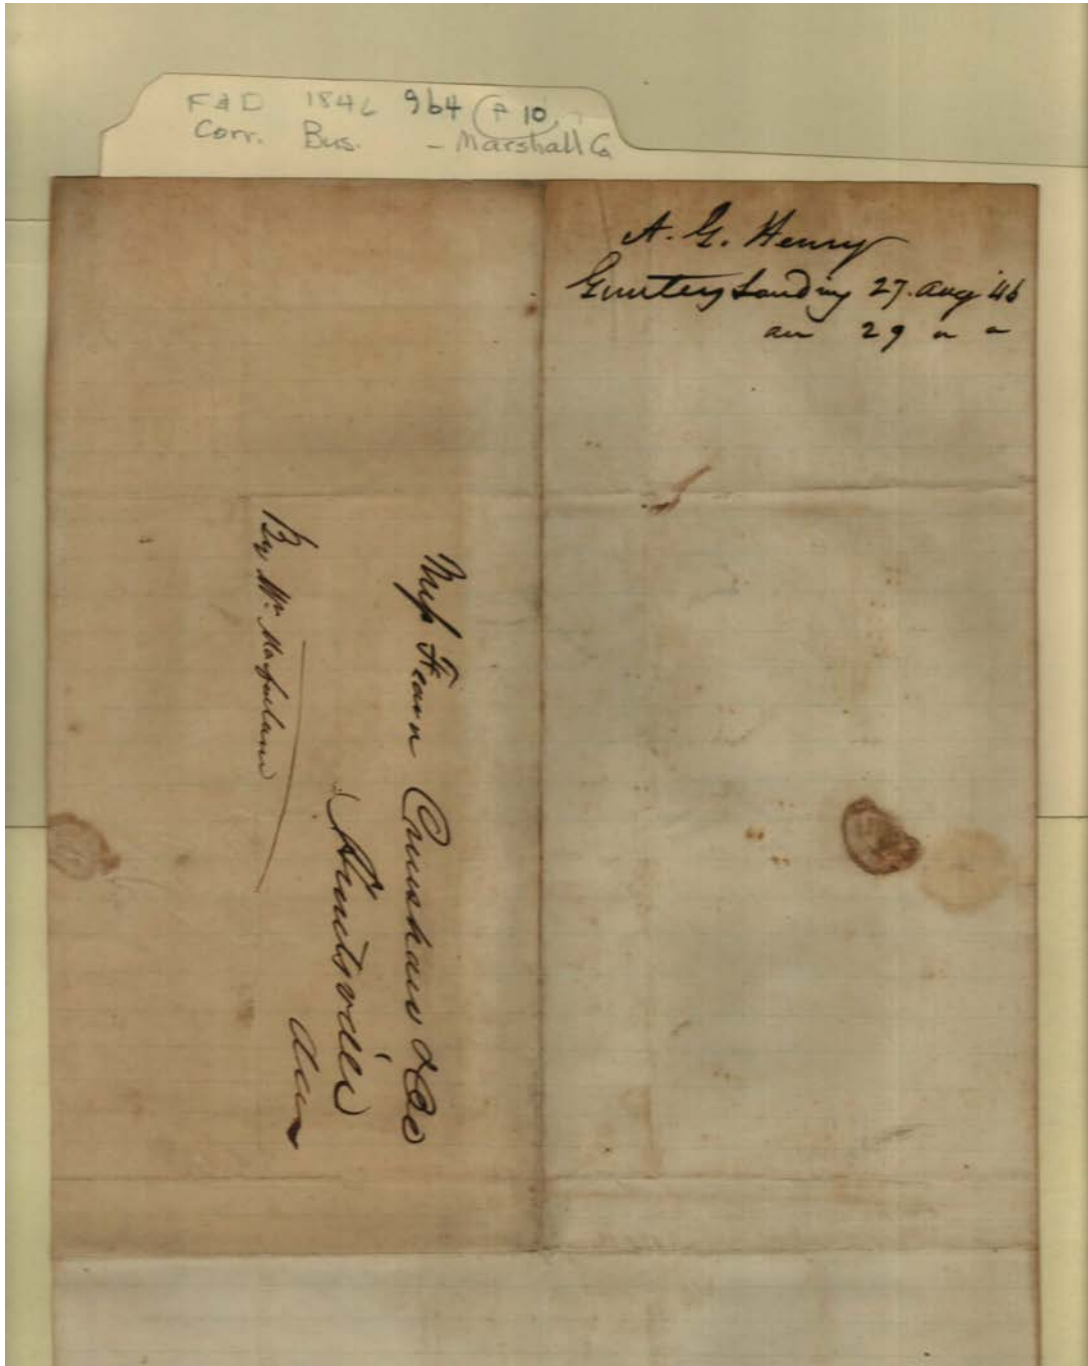 F&D 1846 964 P 10
Corr. Bus. - Marshall Co
A. G. Henry
Gunters Landing 27. Aug 46
an 29 " "
Mess Fearn Crenshaw & Co
Huntsville
Ala
By Mr. Macfarlane